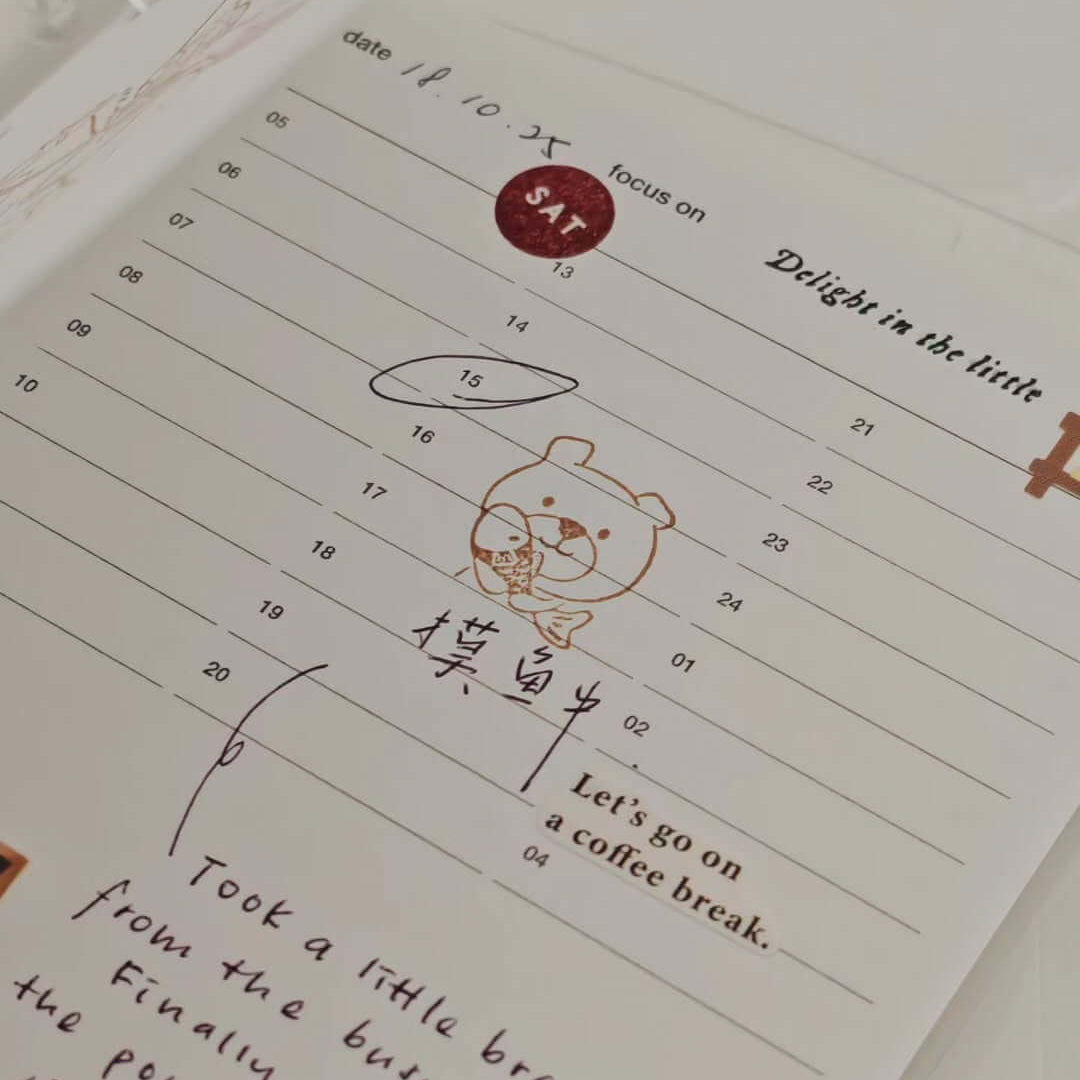 date 18.10.25
SAT
focus on
Delight in the little
05
06
07
08
09
10
13
14
15
16
17
18
19
20
21
22
23
24
01
02
04
摸鱼中
Let's go on
a coffee break.
Took a little
from the
Finally
the